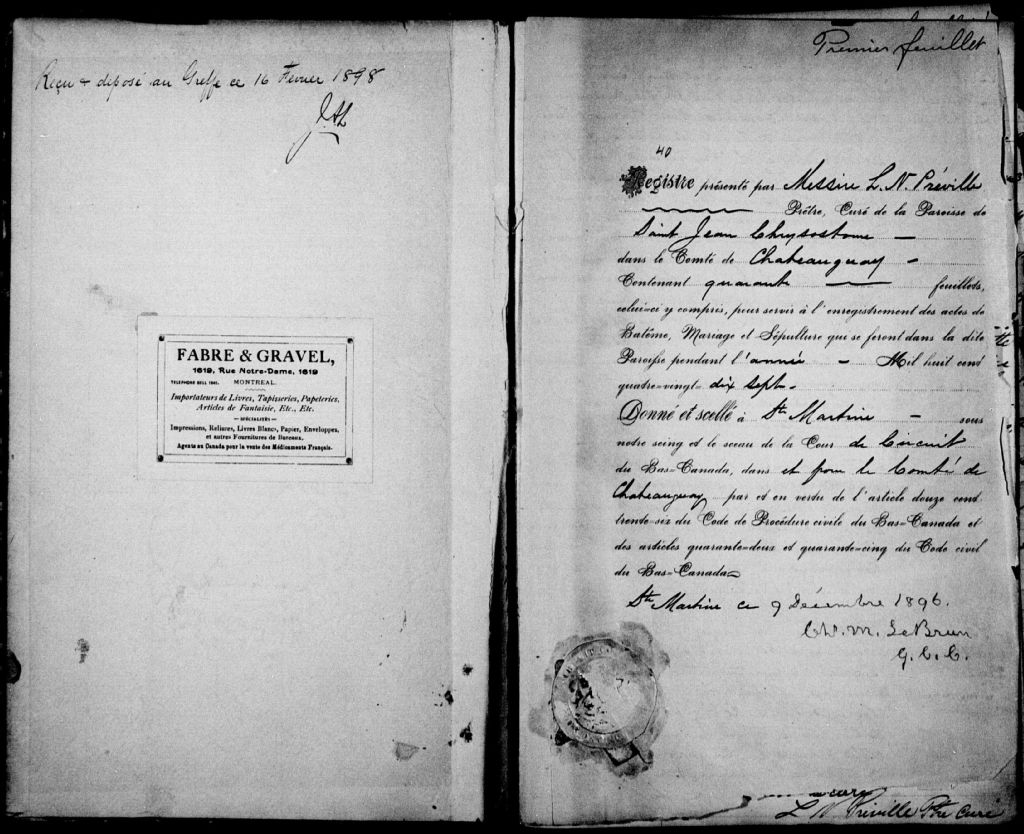 Reçu & déposé au Greffe ce 16 Fevrier 1898
FABRE & GRAVEL,
1619, Rue Notre-Dame, 1619
TELEPHONE BELL
MONTREAL.
Importateurs de Livres, Tapisseries, Papeteries,
Articles de Fantaisie, Etc., Etc.
—SPÉCIALITÉS—
Impressions, Reliures, Livres Blancs, Papier, Enveloppes,
et autres Fournitures de Bureaux.
Agents au Canada pour la vente des Médicaments Français.
Premier feuillet
40
Registre présenté par Messire L. N. Préville
Prêtre, Curé de la Paroisse de
Saint Jean Chrysostome —
dans le Comté de Chateauguay —
Contenant quarante — feuillets,
celui-ci y compris, pour servir à l'enregistrement des actes de
Batême, Mariage et Sépulture qui se feront dans la dite
Paroisse pendant l'année — Mil huit cent
quatre-vingt- dix sept-
Donné et scellé à Ste Martine — sous
notre seing et le sceau de la Cour de Circuit
du Bas-Canada, dans et pour le Comté de
Chateauguay par et en vertu de l'article douze cent
trente-six du Code de Procédure civile du Bas-Canada et
des articles quarante-deux et quarante-cinq du Code civil
du Bas-Canada
Ste Martine ce 9 Décembre 1896.
Chs. M. LeBrun
G. C. C.
curé
L N Préville Ptre curé